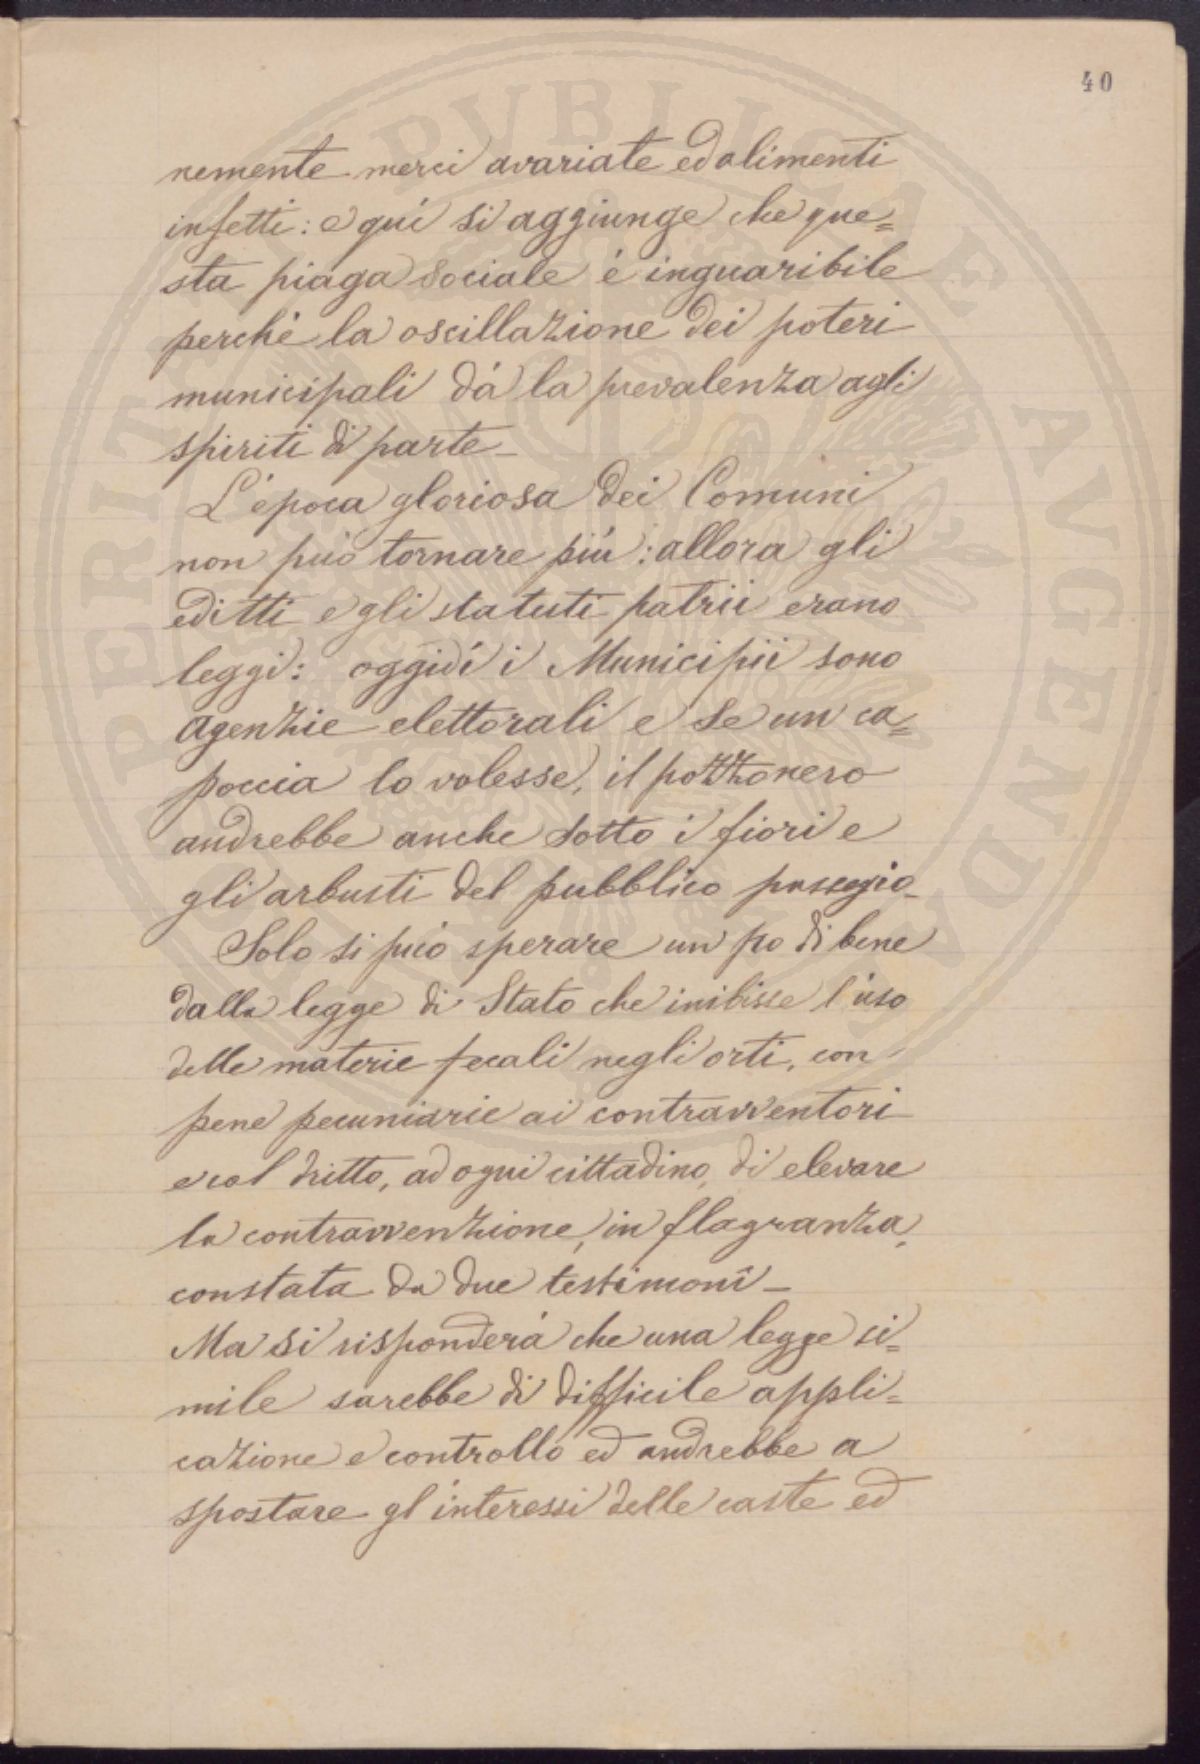 40
nemente merci avariate ed alimenti
infetti: e quí si aggiunge che que=
sta piaga sociale é inguaribile
perché la oscillazione dei poteri
municipali dá la prevalenza agli
spiriti di parte_
L'época gloriosa dei Comuni
non puó tornare piú: allora gli
editti e gli statuti patrii erano
leggi: oggidí i Municipii sono
agenzie elettorali e se un ca=
poccia lo volesse, il pozzonero
andrebbe anche sotto i fiori e
gli arbusti del pubblico passegio_
Solo si puó sperare un po di bene
dalla legge di Stato che inibisse l'uso
delle materie fecali negli orti, con
pene pecuniarie ai contravventori
e col dritto, ad ogni cittadino, di elevare
la contravvenzione, in flagranza,
constata da due testimonî_
Ma si risponderá che una legge si=
mile sarebbe di difficile appli=
cazione e controllo ed andrebbe a
spostare gl'interessi delle caste ed
PERITE PUBLICAE AVGENDAE